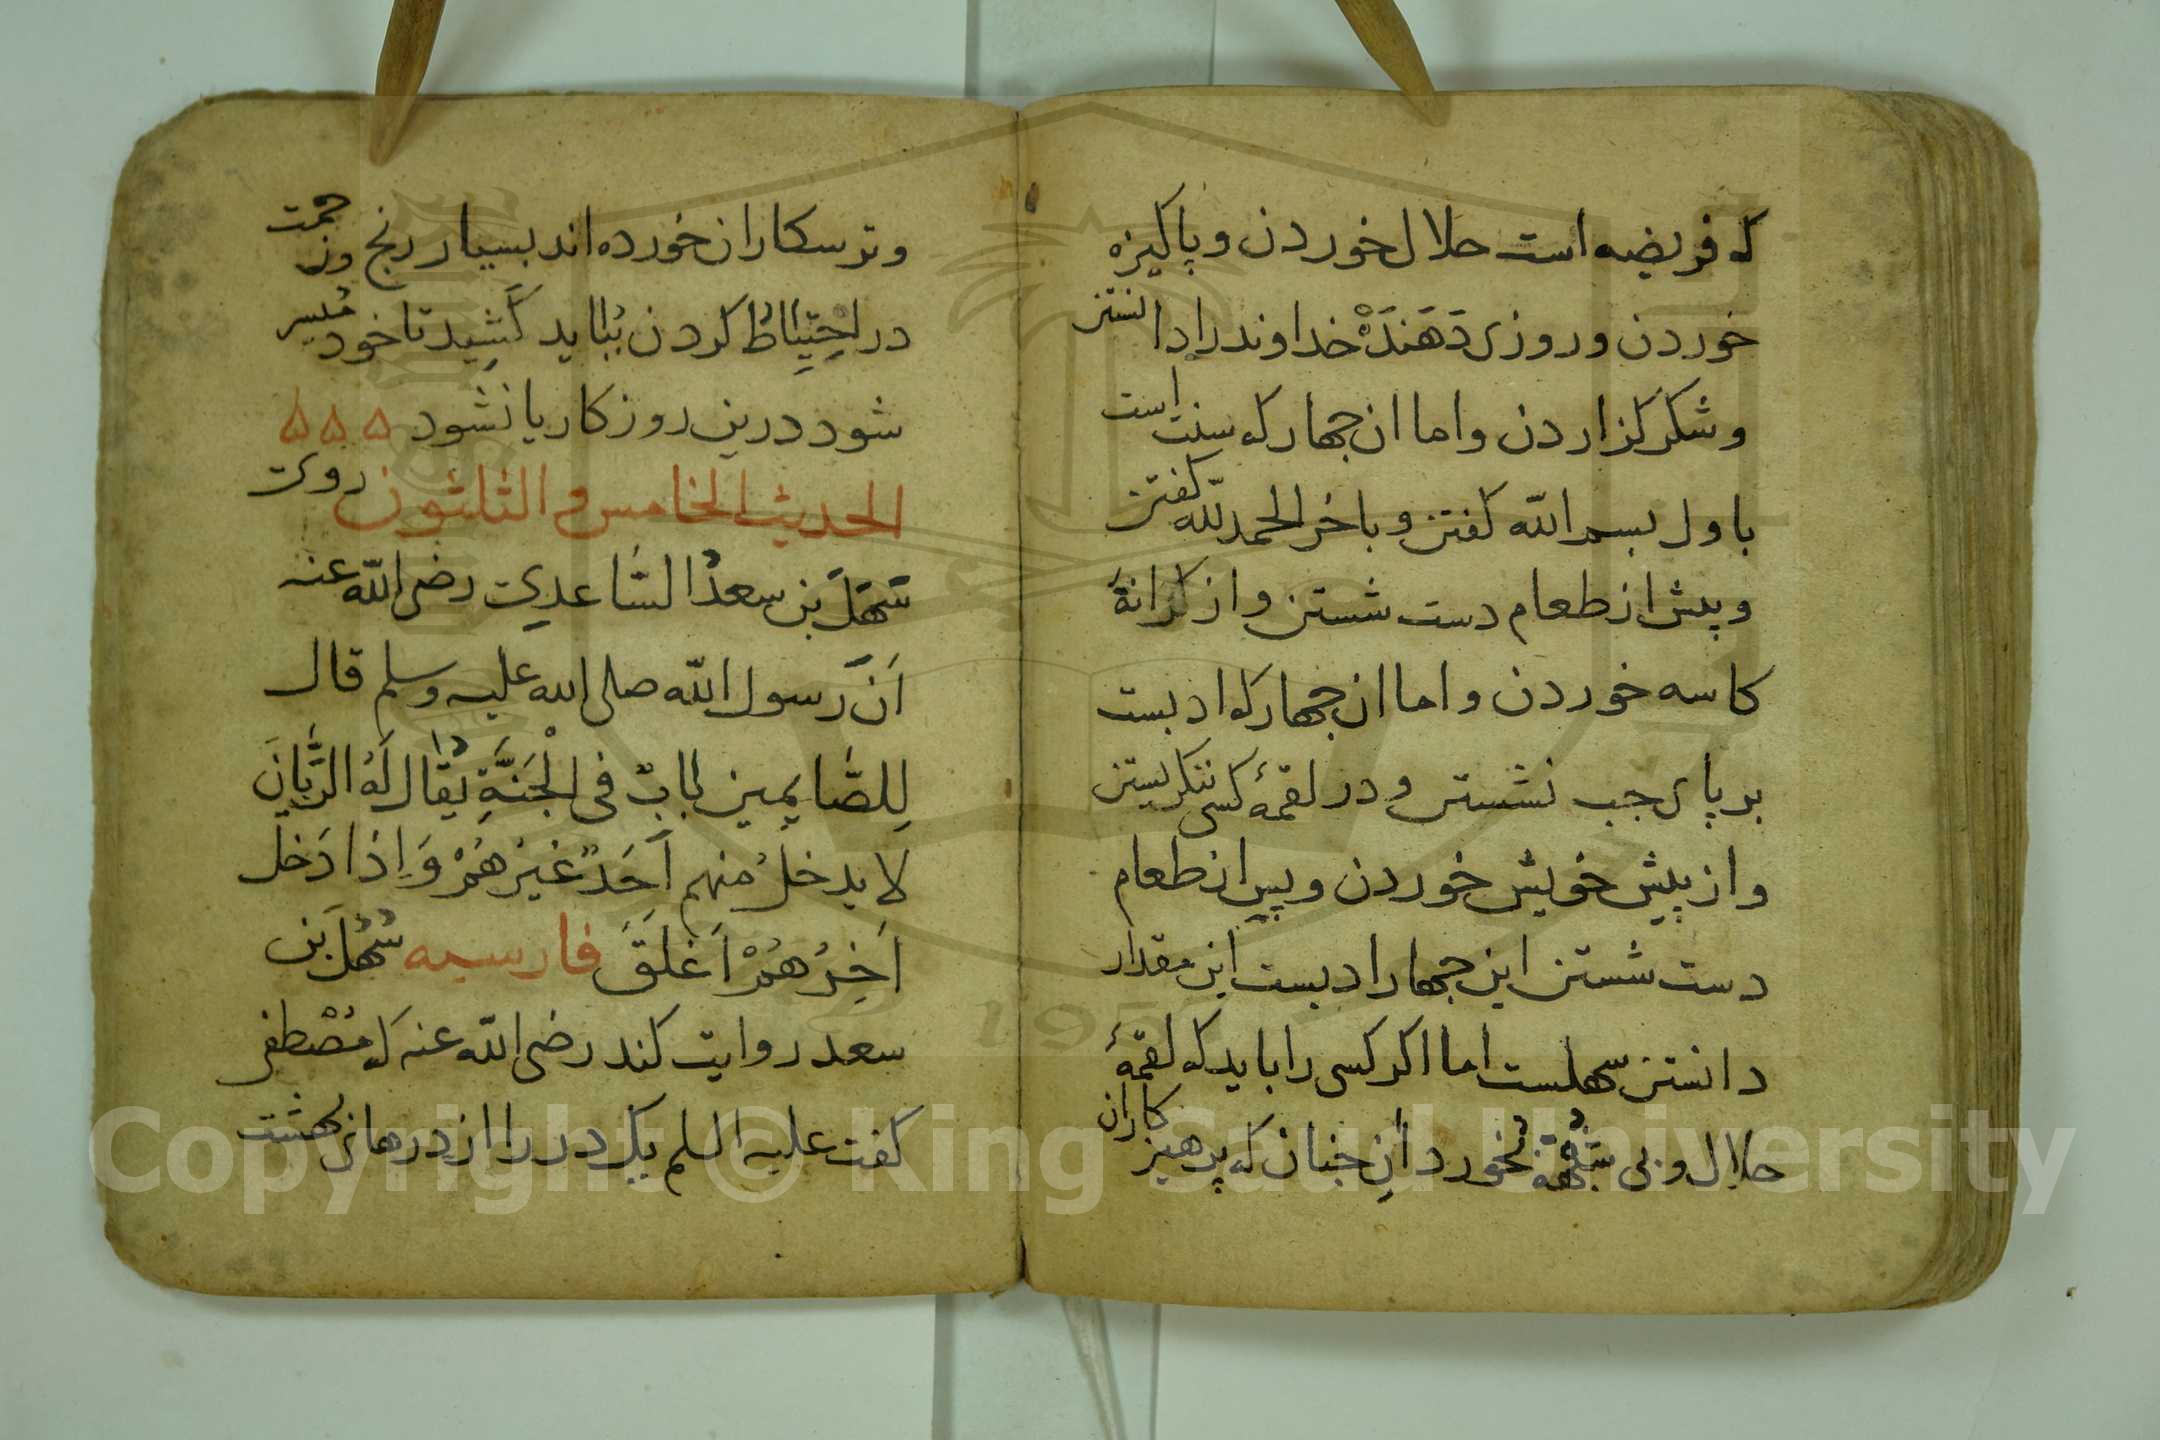 که فریضه است حلال خوردن و پاکیزه
خوردن و روزی دَهَندَهْ خداوند را دانستن
و شکر کزاردن و اما ان جهار که سنت است
باول بسم الله کفتن و باخر الحمد لله کفتن
و پیش از طعام دست شستن و از کرانهٔ
کاسه خوردن و اما ان جهار که ادبست
بر پای جب نشستن و در لقمهٔ کسی ننکریستن
و از پیش خویش خوردن و پس از طعام
دست شستن این جهار ادبست این مقدار
دانستن سهلست اما اکر کسی را باید که لقمهٔ
حلال و بی شبهة خورد انِ جنان که پرهیز کاران
و ترسکاران خورده اند بسیار رنج و زحمت
در احتِیاطُ کردن بباید کَشِید تا خود مُیسر
شود درین روزکار یا نشود ۵ ۵ ۵
الحدیث الخامس و الثلثون روی
سَهلَ بن سعدُ السَّاعدِی رضی الله عنه
اَنَّ رَسول الله صلی الله علیه وسلم قال
لِلصَّایِمِین بابٌ فی الْجَنَّةِ یُقالُ لَهُ الرَّیانَ
لا یدخلُ منهم اَحَدٌ غیرَهُمْ وَاِذا دَخل
اَخِرُهُمْ اَغلَقَ فارسیه سُهَل بن
سعد روایت کند رضی الله عنه که مُصْطفی
کفت علیه السلم یک در را از درهای بهشت
Copyright © King Saud University
1957